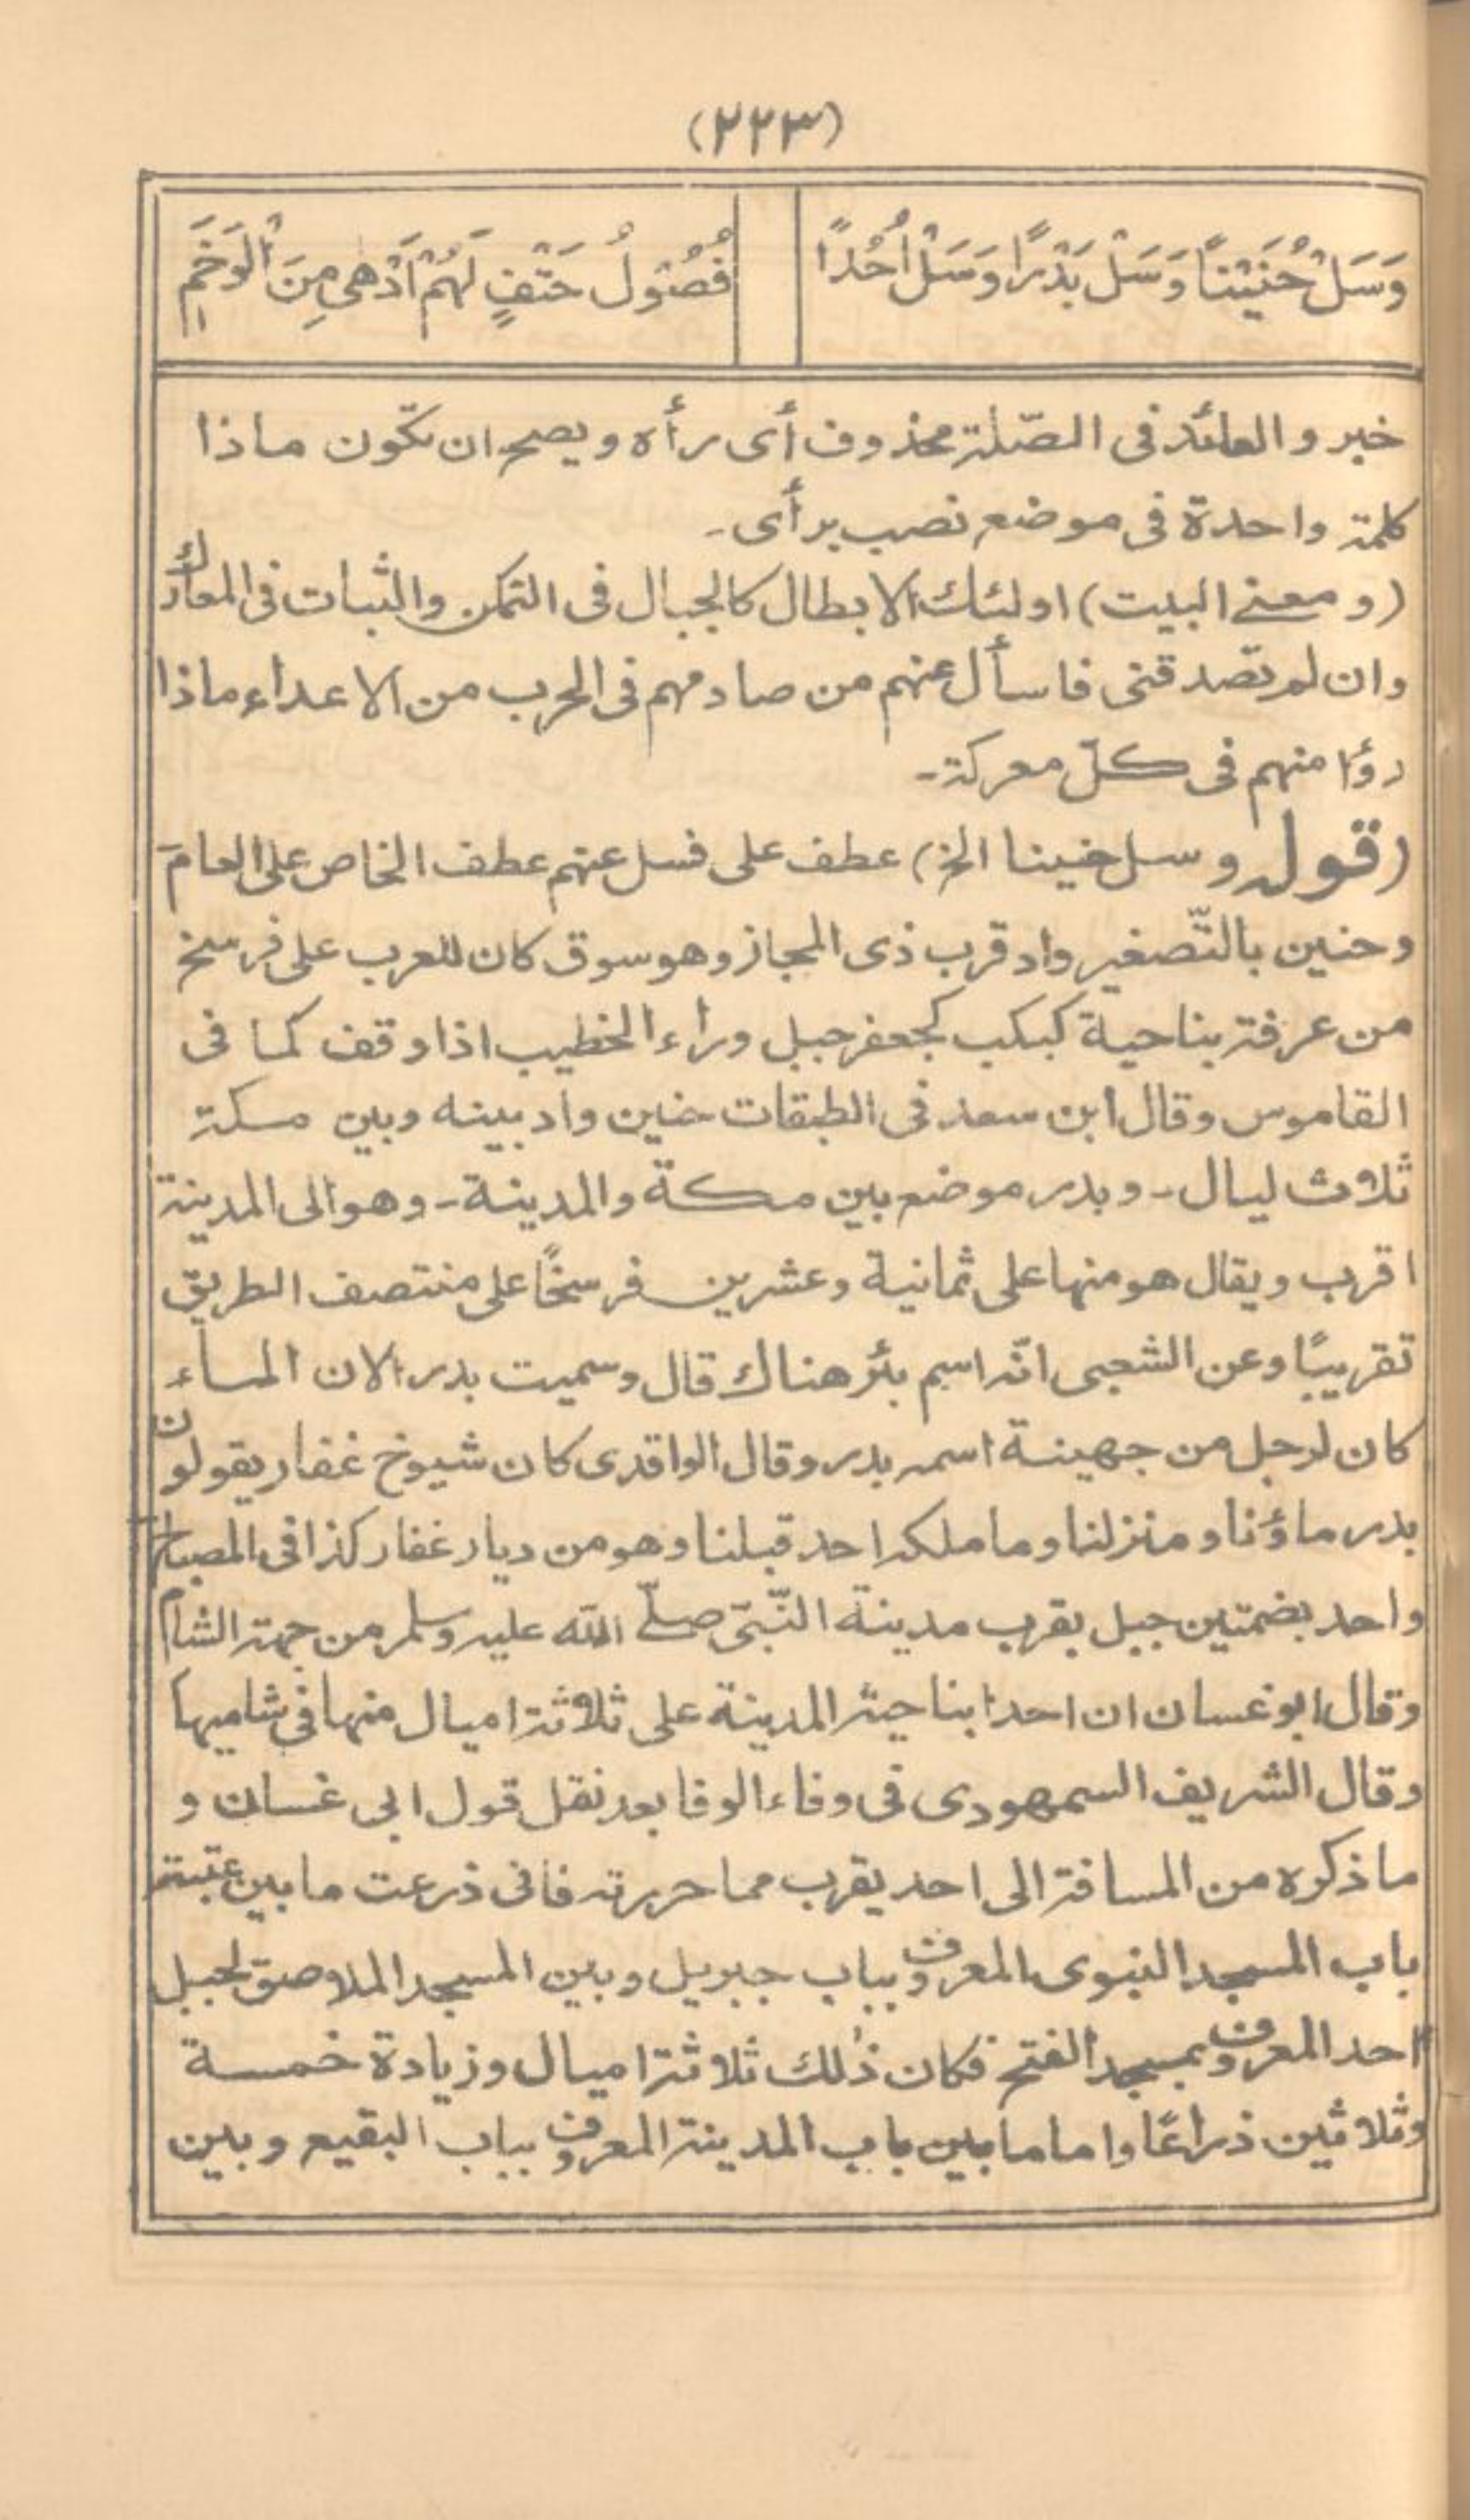 (٢٢٣)
وَسَلْ حُنَيْنًا وَسَلْ بَدْرًا وَسَلْ اُحُدًا
فُصُوْلُ حَتْفٍ لَهُمْ اَدْهٰى مِنَ الْوَخَمِ
خبر والعائد فى الصّلة محذوف أى رأه ويصح ان تكون ماذا
كلمة واحدة فى موضع نصب برأى۔
(ومعنے البيت) اولئك الابطال كالجبال فى التمكن والثبات فى المعارك
وان لم تصدقنى فاسأل عنهم من صادمهم فى الحرب من الاعداء ماذا
رؤا منهم فى كلّ معركة۔
(قوله وسل حنينا الخ) عطف على فسل عنهم عطف الخاص على العام
وحنين بالتّصغير واد قرب ذى المجاز وهو سوق كان للعرب على فرسخ
من عرفة بناحية كبكب كجعفر جبل وراء الخطيب اذا وقف كما فى
القاموس وقال ابن سعد فى الطبقات حنين واد بينه وبين مكة
ثلاث ليال۔ وبدر موضع بين مكة والمدينة۔ وهو الى المدينة
اقرب ويقال هو منها على ثمانية وعشرين فرسخًا على منتصف الطريق
تقريبًا وعن الشعبى انّه اسم بئر هناك قال وسميت بدر الان الماء
كان لرجل من جهينة اسمه بدر وقال الواقدى كان شيوخ غفار يقولون
بدر ماؤنا ومنزلنا وما ملكه احد قبلنا وهو من ديار غفار كذا فى المصباح
واحد بضمتين جبل بقرب مدينة النّبىّ صلّے الله عليه وسلم من جهة الشام
وقال ابو غسان ان احدا بناحية المدينة على ثلاثة اميال منها فى شاميها
وقال الشريف السمهودى فى وفاء الوفا بعد نقل قول ابى غسان و
ما ذكره من المسافة الى احد يقرب مما حررته فانى ذرعت ما بين عتبة
باب المسجد النبوى المعروف بباب جبريل وبين المسجد الملاصق لجبل
احد المعروف بمسجد الفتح فكان ذٰلك ثلاثة اميال وزيادة خمسة
وثلاثين ذراعًا واما ما بين باب المدينة المعروف بباب البقيع وبين